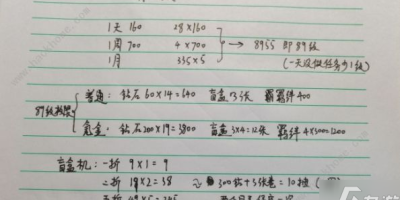 1天 160 28×160
1周 700 4×700 → 8955 即89级
1月 335×5 (一天没做任务少1级)
89级
普通: 钻石 60×14=640 盲盒 13张 羁绊 400
氪金: 钻石 200×19=3800 盲盒 3×4=12张 羁绊 4×300=1200
盲盒机: 一折 9×1=9
二折 18×2=38 300钻+5张卷=10抽